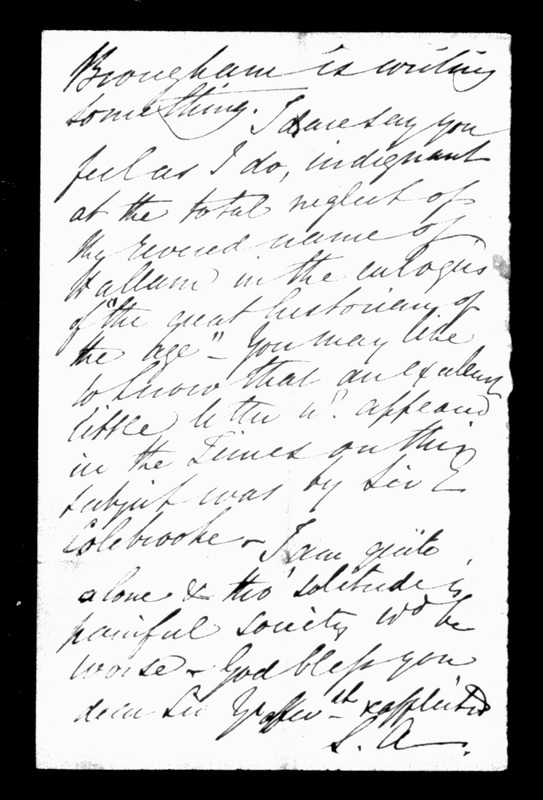 Brougham is writing
something. I daresay you
feel as I do, indignant
at the total neglect of
the revered name of
Hallam in the eulogies
of "the great historian of
the age" - You may like
to know that an excellent
little letter wh. appeared
in the Times on this
subject was by Sir E
Colebrooke - I am quite
alone & tho' solitude is
painful society wd be
worse - God bless you
dear Sir Yr affec & afflicted
S. A.